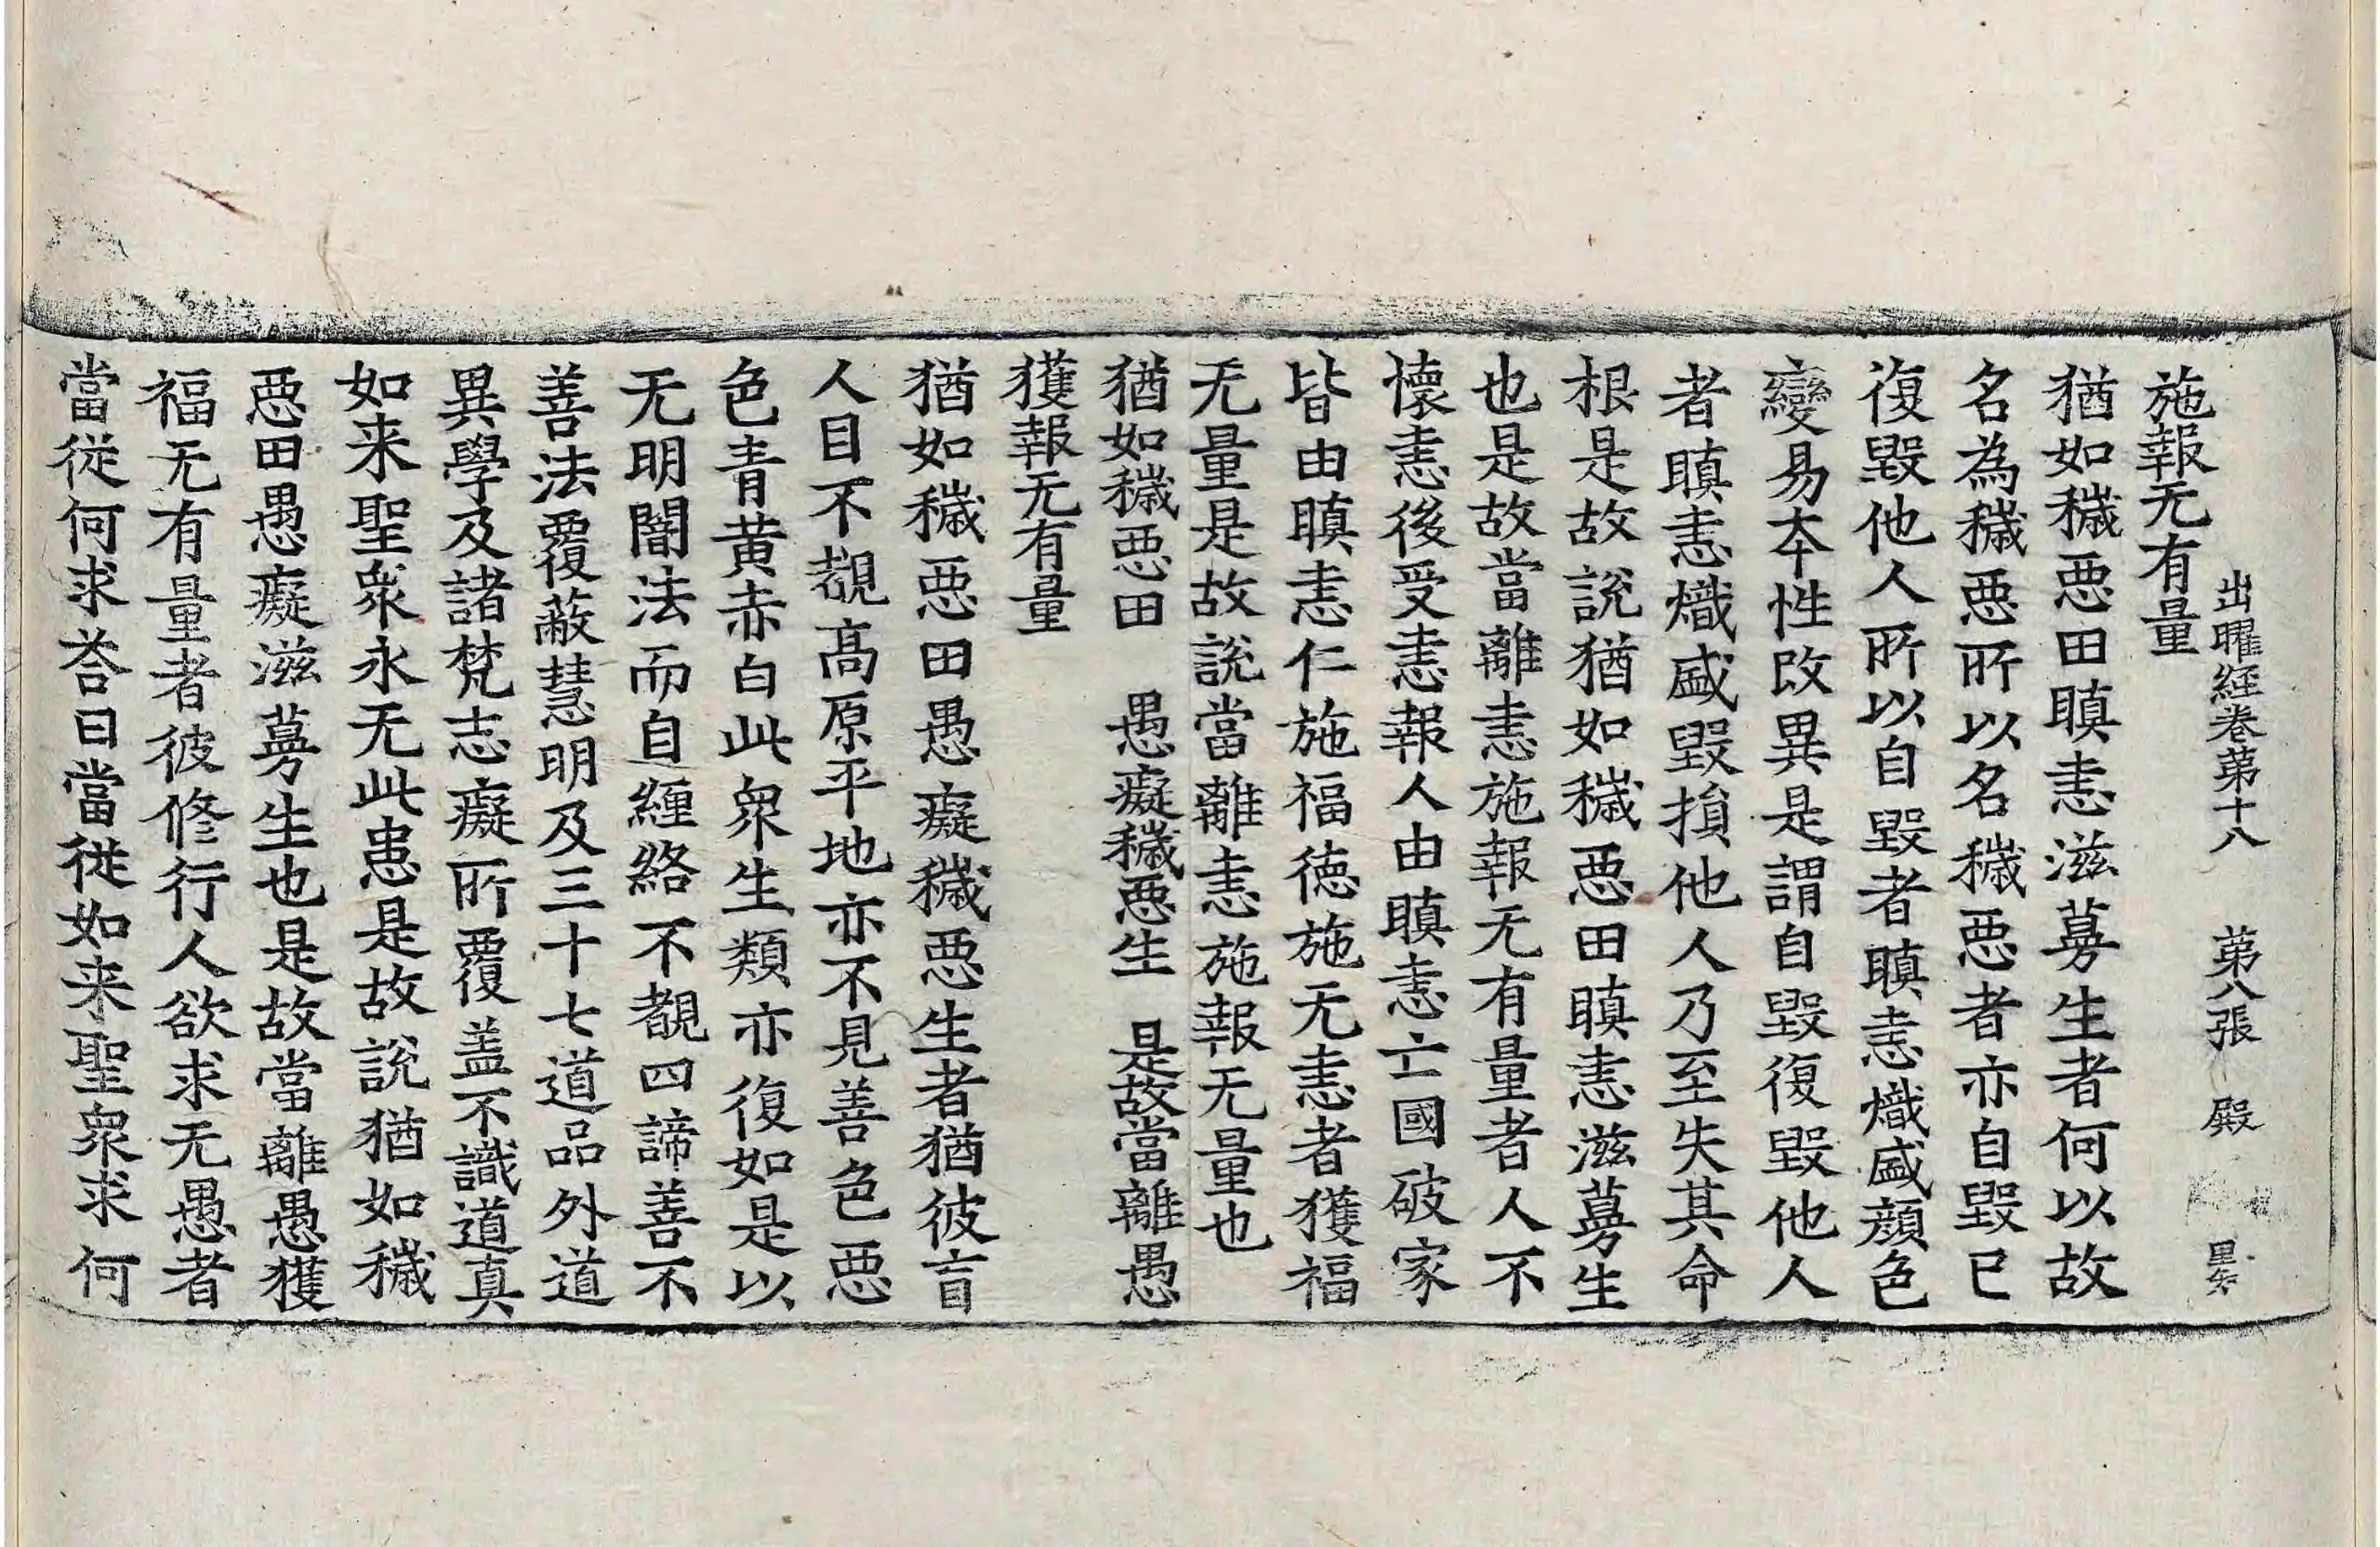 出曜經卷第十八　第八張　殿
施報无有量
猶如穢惡田瞋恚滋蔓生者何以故
名為穢惡所以名穢惡者亦自毀已
復毀他人所以自毀者瞋恚熾盛顏色
變易本性改異是謂自毀復毀他人
者瞋恚熾盛毀損他人乃至失其命
根是故說猶如穢惡田瞋恚滋蔓生
也是故當離恚施報无有量者人不
懷恚後受恚報人由瞋恚亡國破家
皆由瞋恚仁施福德施无恚者獲福
无量是故說當離恚施報无量也
猶如穢惡田　愚癡穢惡生　是故當離愚
獲報无有量
猶如穢惡田愚癡穢惡生者猶彼盲
人目不覩高原平地亦不見善色惡
色青黃赤白此眾生類亦復如是以
无明闇法而自纏絡不覩四諦善不
善法覆蔽慧明及三十七道品外道
異學及諸梵志癡所覆蓋不識道真
如来聖眾永无此患是故說猶如穢
惡田愚癡滋蔓生也是故當離愚獲
福无有量者彼修行人欲求无愚者
當從何求荅曰當從如来聖眾求何